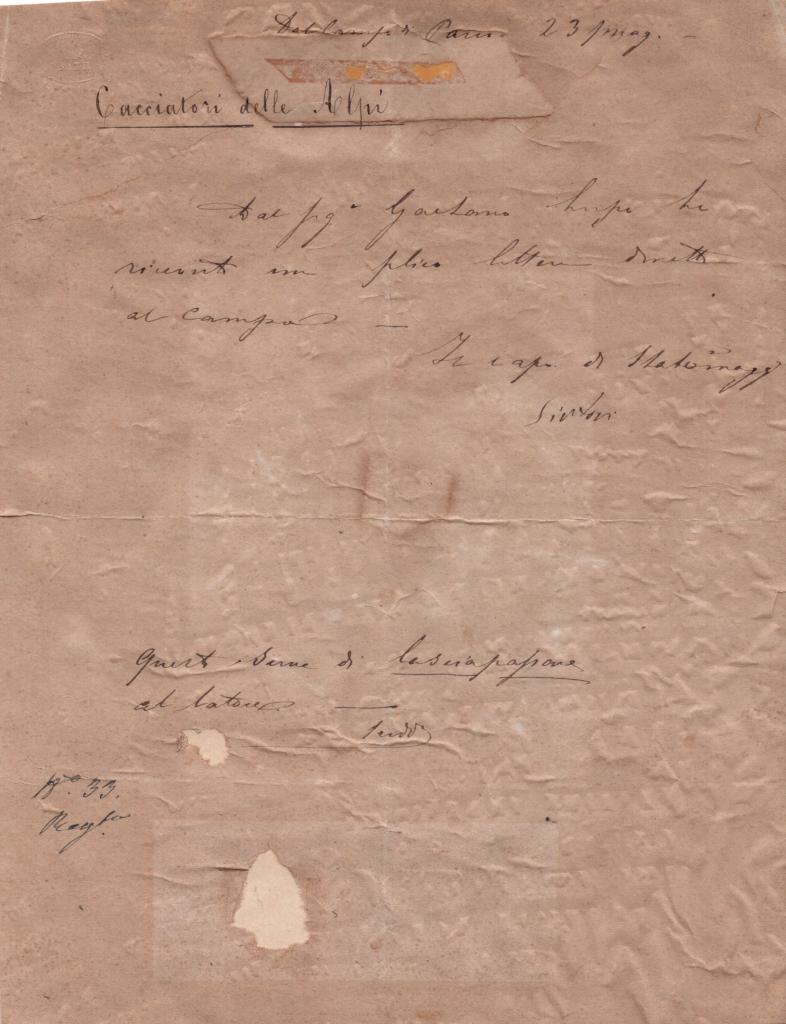 Dal Campo di Parco 23 mag.
Cacciatori delle Alpi
Dal Sigr Gaetano Lupo ho
ricevuto un plico lettere dirette
al campo —
Il capo di Statomaggre
Sirtori
Questo serve di lasciapassare
al latore —
Sudd
No. 33.